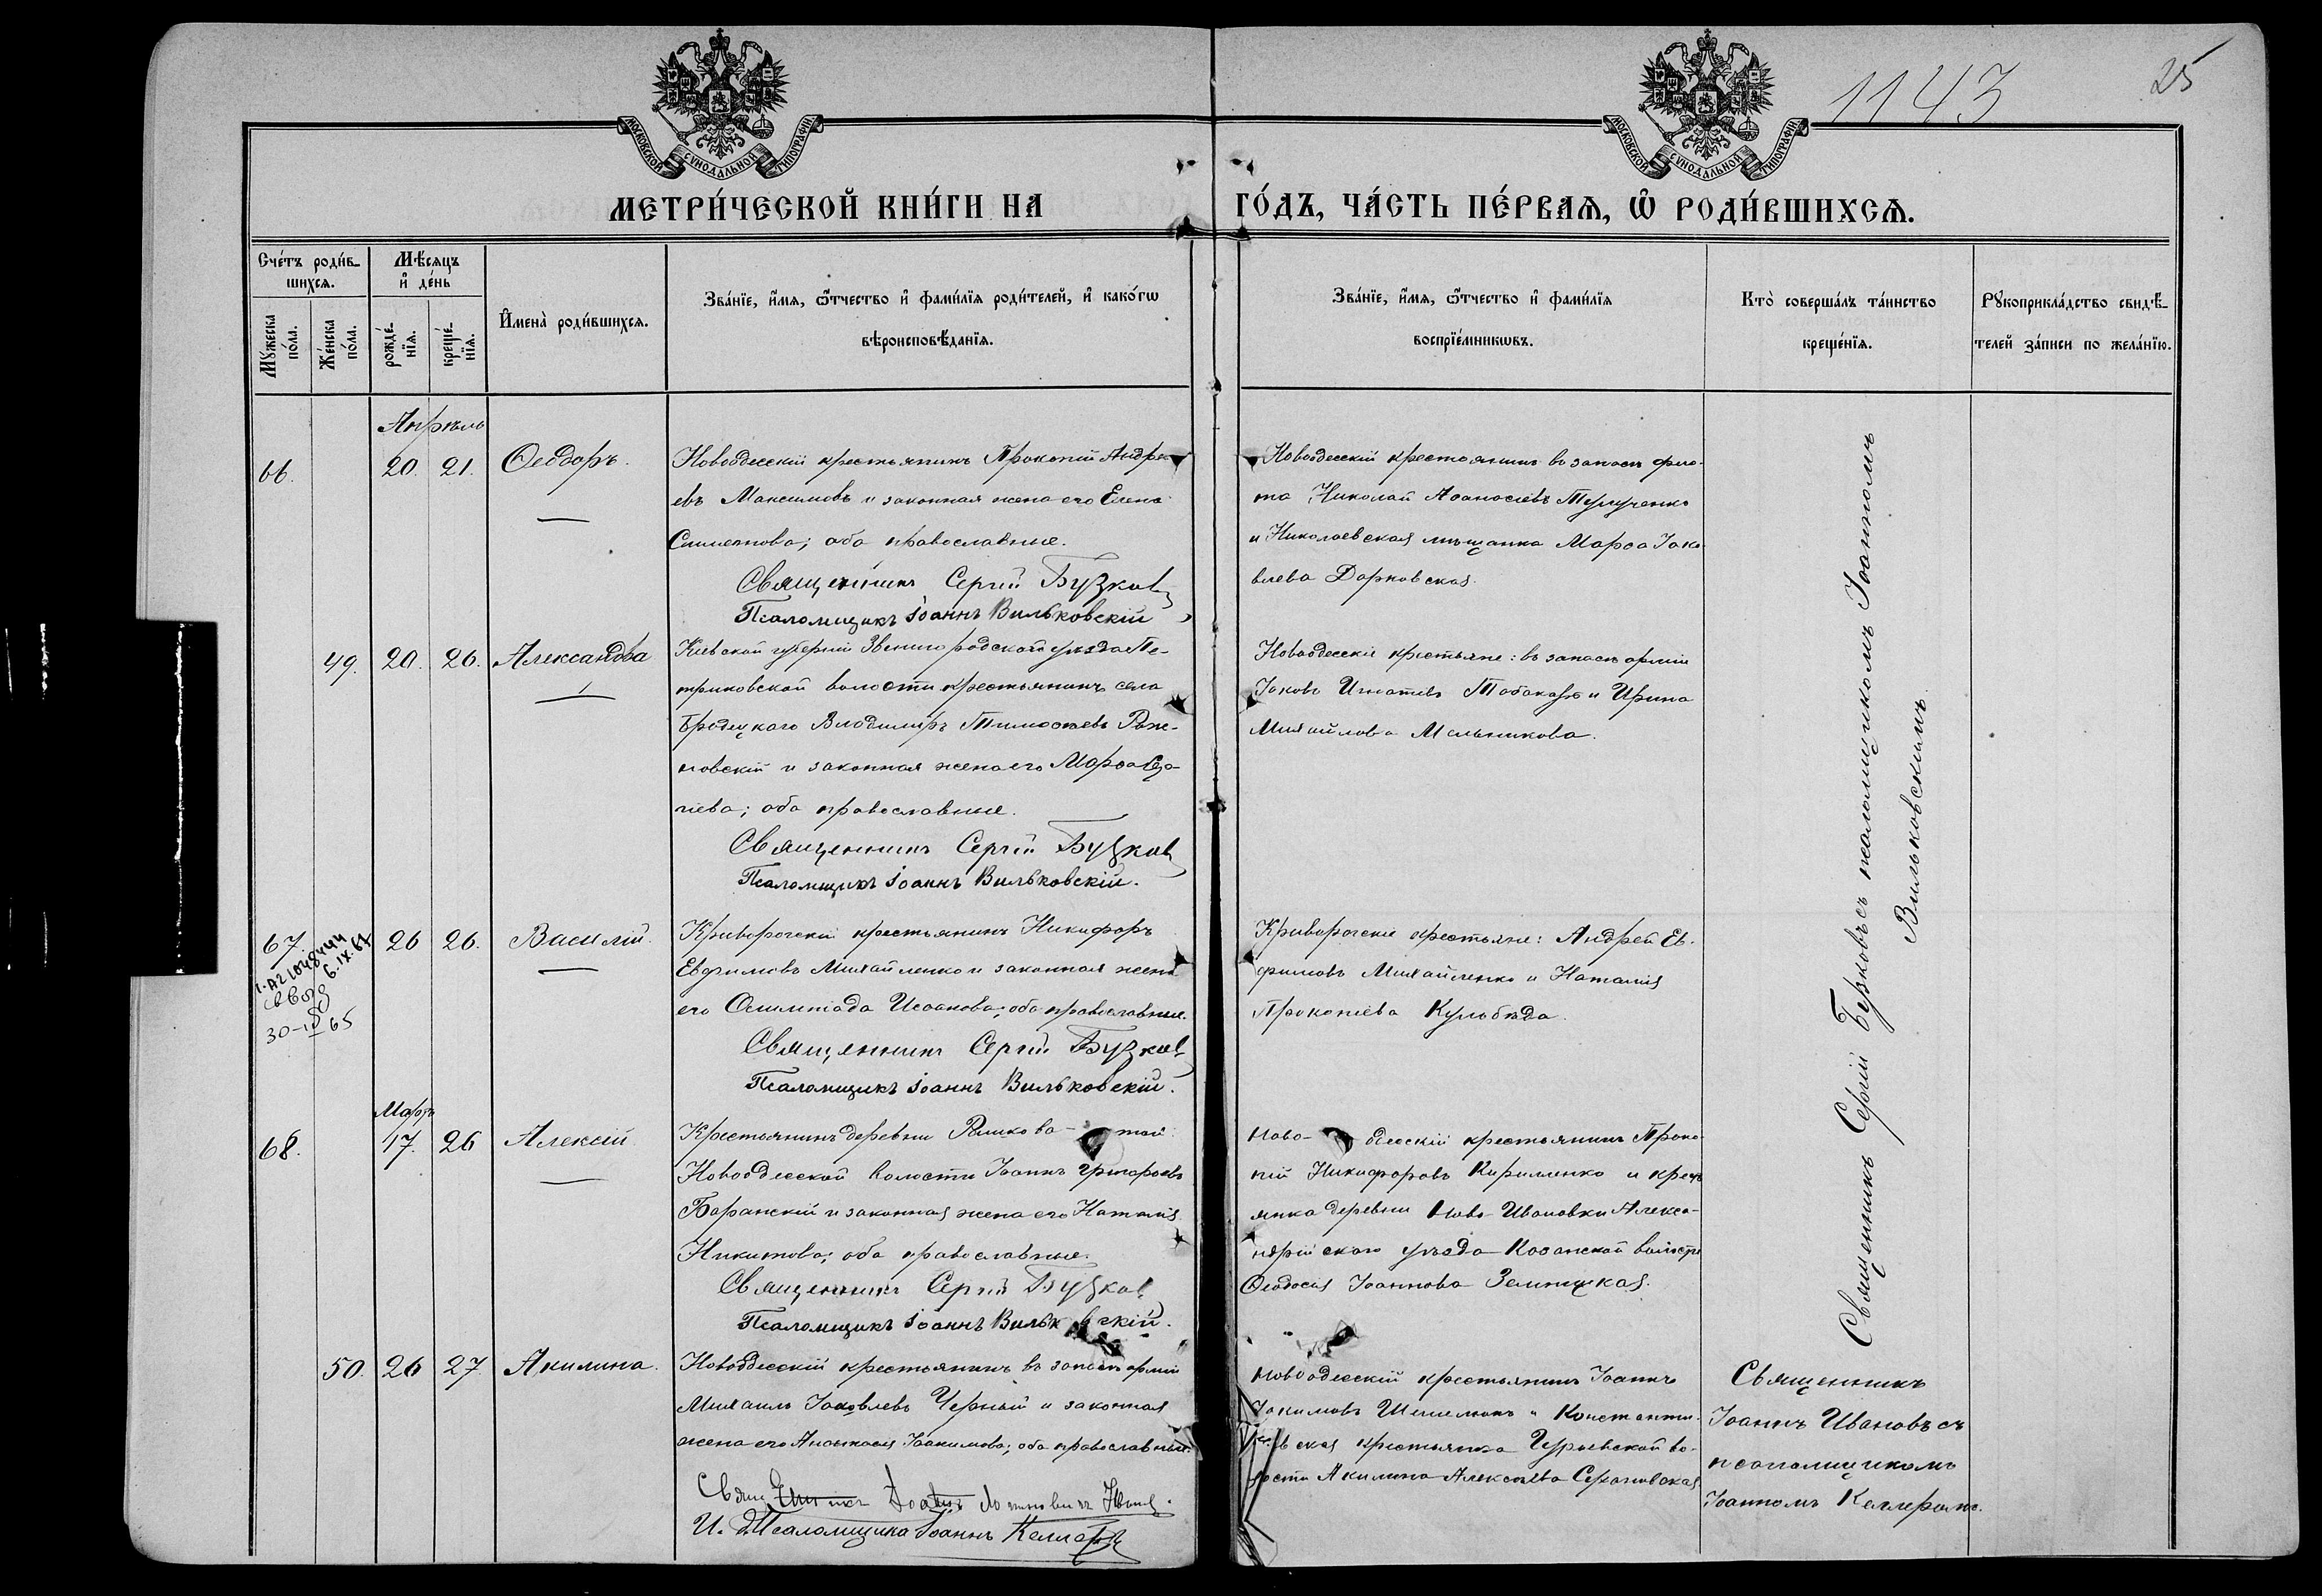 1143
25
МОСКОВСКОЙ СѴНОДАЛЬНОЙ ТИПОГРАФІИ
МОСКОВСКОЙ СѴНОДАЛЬНОЙ ТИПОГРАФІИ
МЕТРИ́ЧЕСКОЙ КНИ́ГИ НА
ГО́ДЪ, ЧА́СТЬ ПЕ́РВАѦ, Ѡ҆ РОДИ́ВШИХСѦ.
Сче́тъ роди́в-
шихсѧ.
Мꙋ́жеска по́ла.
Же́нска по́ла.
Мѣ́сѧцъ
и҆ де́нь
рожде́-
нїѧ.
креще́-
нїѧ.
И҆мена̀ роди́вшихсѧ.
Зва́нїе, и҆́мѧ, ѻ҆́тчество и҆ фами́лїѧ роди́телей, и҆ како́гѡ
вѣроисповѣ́данїѧ.
Зва́нїе, и҆́мѧ, ѻ҆́тчество и҆ фами́лїѧ
воспрїе́мникѡвъ.
Кто̀ соверша́лъ та́инство
креще́нїѧ.
Рꙋкоприкла́дство свидѣ́-
телей за́писи по жела́нїю.
Апрѣль
66.
20.
21.
Ѳеодоръ.
Новоодесскій крестьянинъ Прокопій Андре-
евъ Максимовъ и законная жена его Елена
Симеонова; оба православные.
Священникъ Сергій
Псаломщикъ Іоаннъ Вильковскій
Новоодесскій крестьянинъ въ запасѣ фло-
та Николай Аѳанасіевъ
и Николаевская мѣщанка Марѳа Іако-
влева
49.
20.
26.
Александра
Кіевской губерніи Звенигородскаго уѣзда Пе-
триковской волости крестьянинъ села
Бродецкаго Владиміръ Тимоѳеевъ
новскій и законная жена его Марѳа
оба православные.
Священникъ Сергій
Псаломщикъ Іоаннъ Вильковскій.
Новоодесскіе крестьяне: въ запасѣ арміи
Іаковъ Игнатіевъ и Ирина
Михайлова Мельникова.
67.
26
26.
Василій.
6.IX.67
30-IX 65
Криворогскій крестьянинъ Никифоръ
Евфимовъ Михайленко и законная жена
его Олимпіада Исаакова; оба православные.
Священникъ Сергій
Псаломщикъ Іоаннъ Вильковскій.
Криворогскіе крестьяне: Андрей Ев-
фимовъ Михайленко и Наталія
Прокопіева Кульбѣда.
Мартъ
68.
17.
26
Алексій.
Крестьянинъ деревни
Новоодесской волости Іоаннъ Григоріевъ
Баранскій и законная жена его Наталія
Никитова; оба православные.
Священникъ Сергій
Псаломщикъ Іоаннъ Вильковскій.
Ново-одесскій крестьянинъ Проко-
пій Никифоровъ Кириленко и крест
янка деревни Ново-Ивановки Алекса-
ндрійскаго уѣзда Казанской волости
Ѳеодосія Іоаннова
Священникъ Сергій Бузковъ съ псаломщикомъ Іоанномъ
Вильковскимъ.
50.
26
27.
Акилина.
Новоодесскій крестьянинъ въ запасѣ арміи
Михаилъ Іаковлевъ Черный и законная
жена его Анастасія Іоакимова; оба православные.
Священникъ Іоаннъ
И. д. Псаломщика Іоаннъ
Новоодесскій крестьянинъ Іоаннъ
Іакимовъ и Константи-
новская крестьянка Гурьевской во-
лости Акилина Алексѣева
Священникъ
Іоаннъ Ивановъ съ
псаломщикомъ
Іоанномъ Келлеромъ.